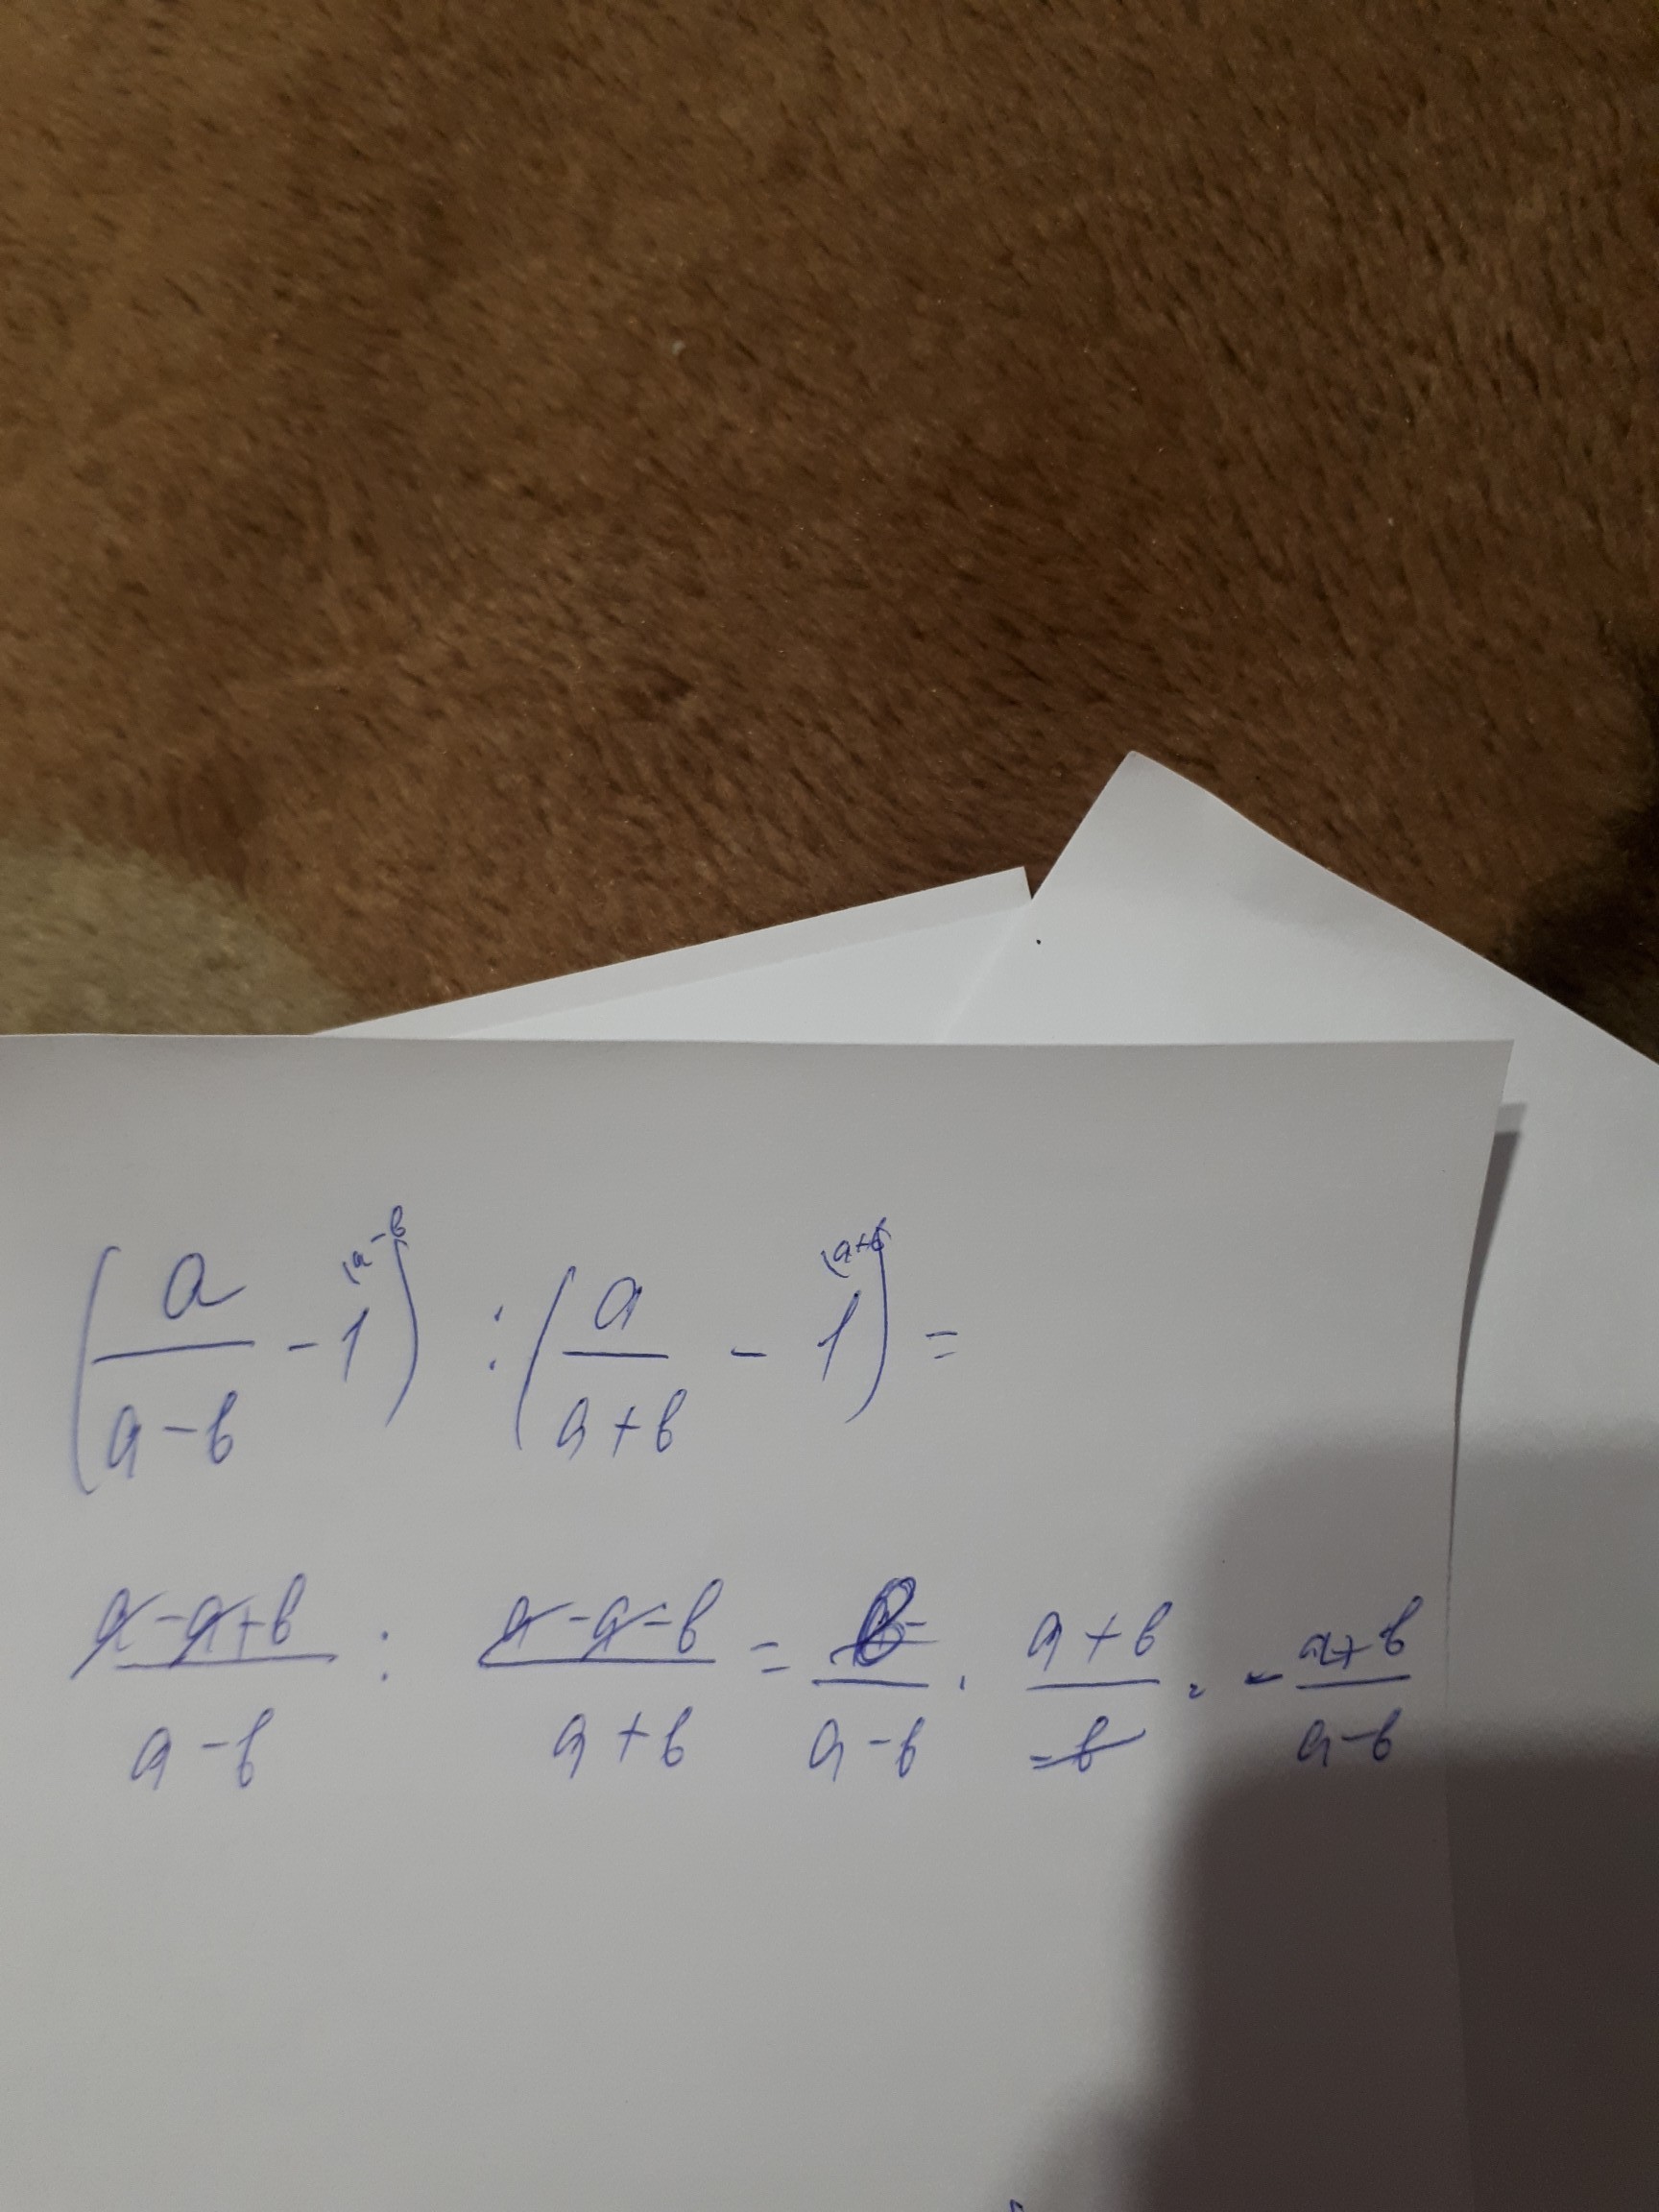 (a/(a-b) - 1^(a-b)) : (a/(a+b) - 1^(a+b)) =
(a-a+b)/(a-b) : (a-a-b)/(a+b) = b/(a-b) · (a+b)/(-b) = -(a+b)/(a-b)